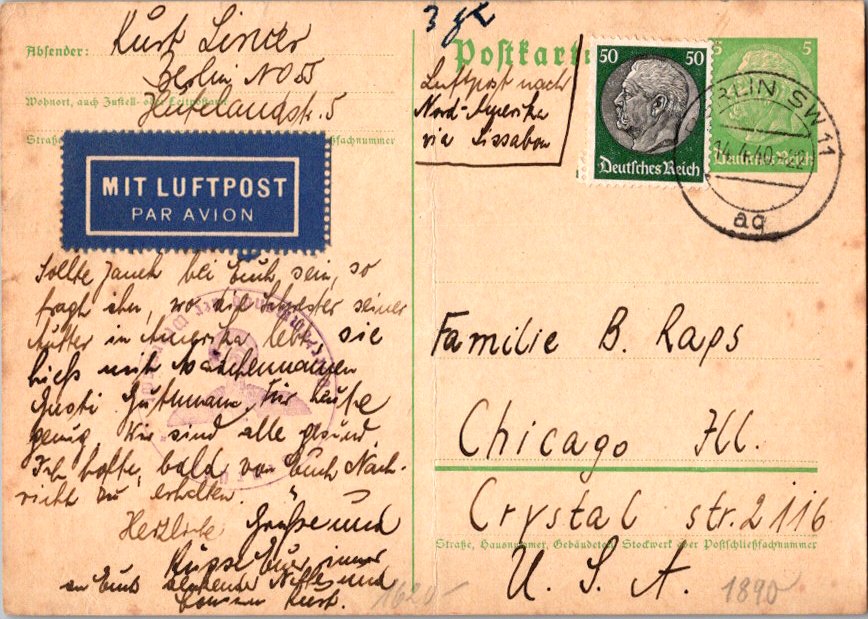 Absender: Kurt
Berlin NO 55
Wohnort, auch Zustell- oder Leitpostamt
Hufelandstr. 5
MIT LUFTPOST
PAR AVION
Sollte bei Euch sein, so
fragt ihn, wo die Schwester seiner
Mutter in Amerika lebt, sie
hieß mit Mädchennamen
Gusti Guttmann. Für heute
genug. Wir sind alle gesund.
Ich hoffe, bald von Euch Nach-
richt zu erhalten.
Herzliche Grüße und
Küsse Euer immer
an Euch denkender Neffe und
Cousin Kurt.
1620-
Postkarte
Luftpost nach
Nord-Amerika
via Lissabon
50 50
Deutsches Reich
5 5
Deutsches Reich
BERLIN SW 11
14.4.40
Familie B. Raps
Chicago Ill.
Crystal str. 2116
Straße, Hausnummer, Gebäudeteil, Stockwerk oder Postschließfachnummer
U. S. A.
1890